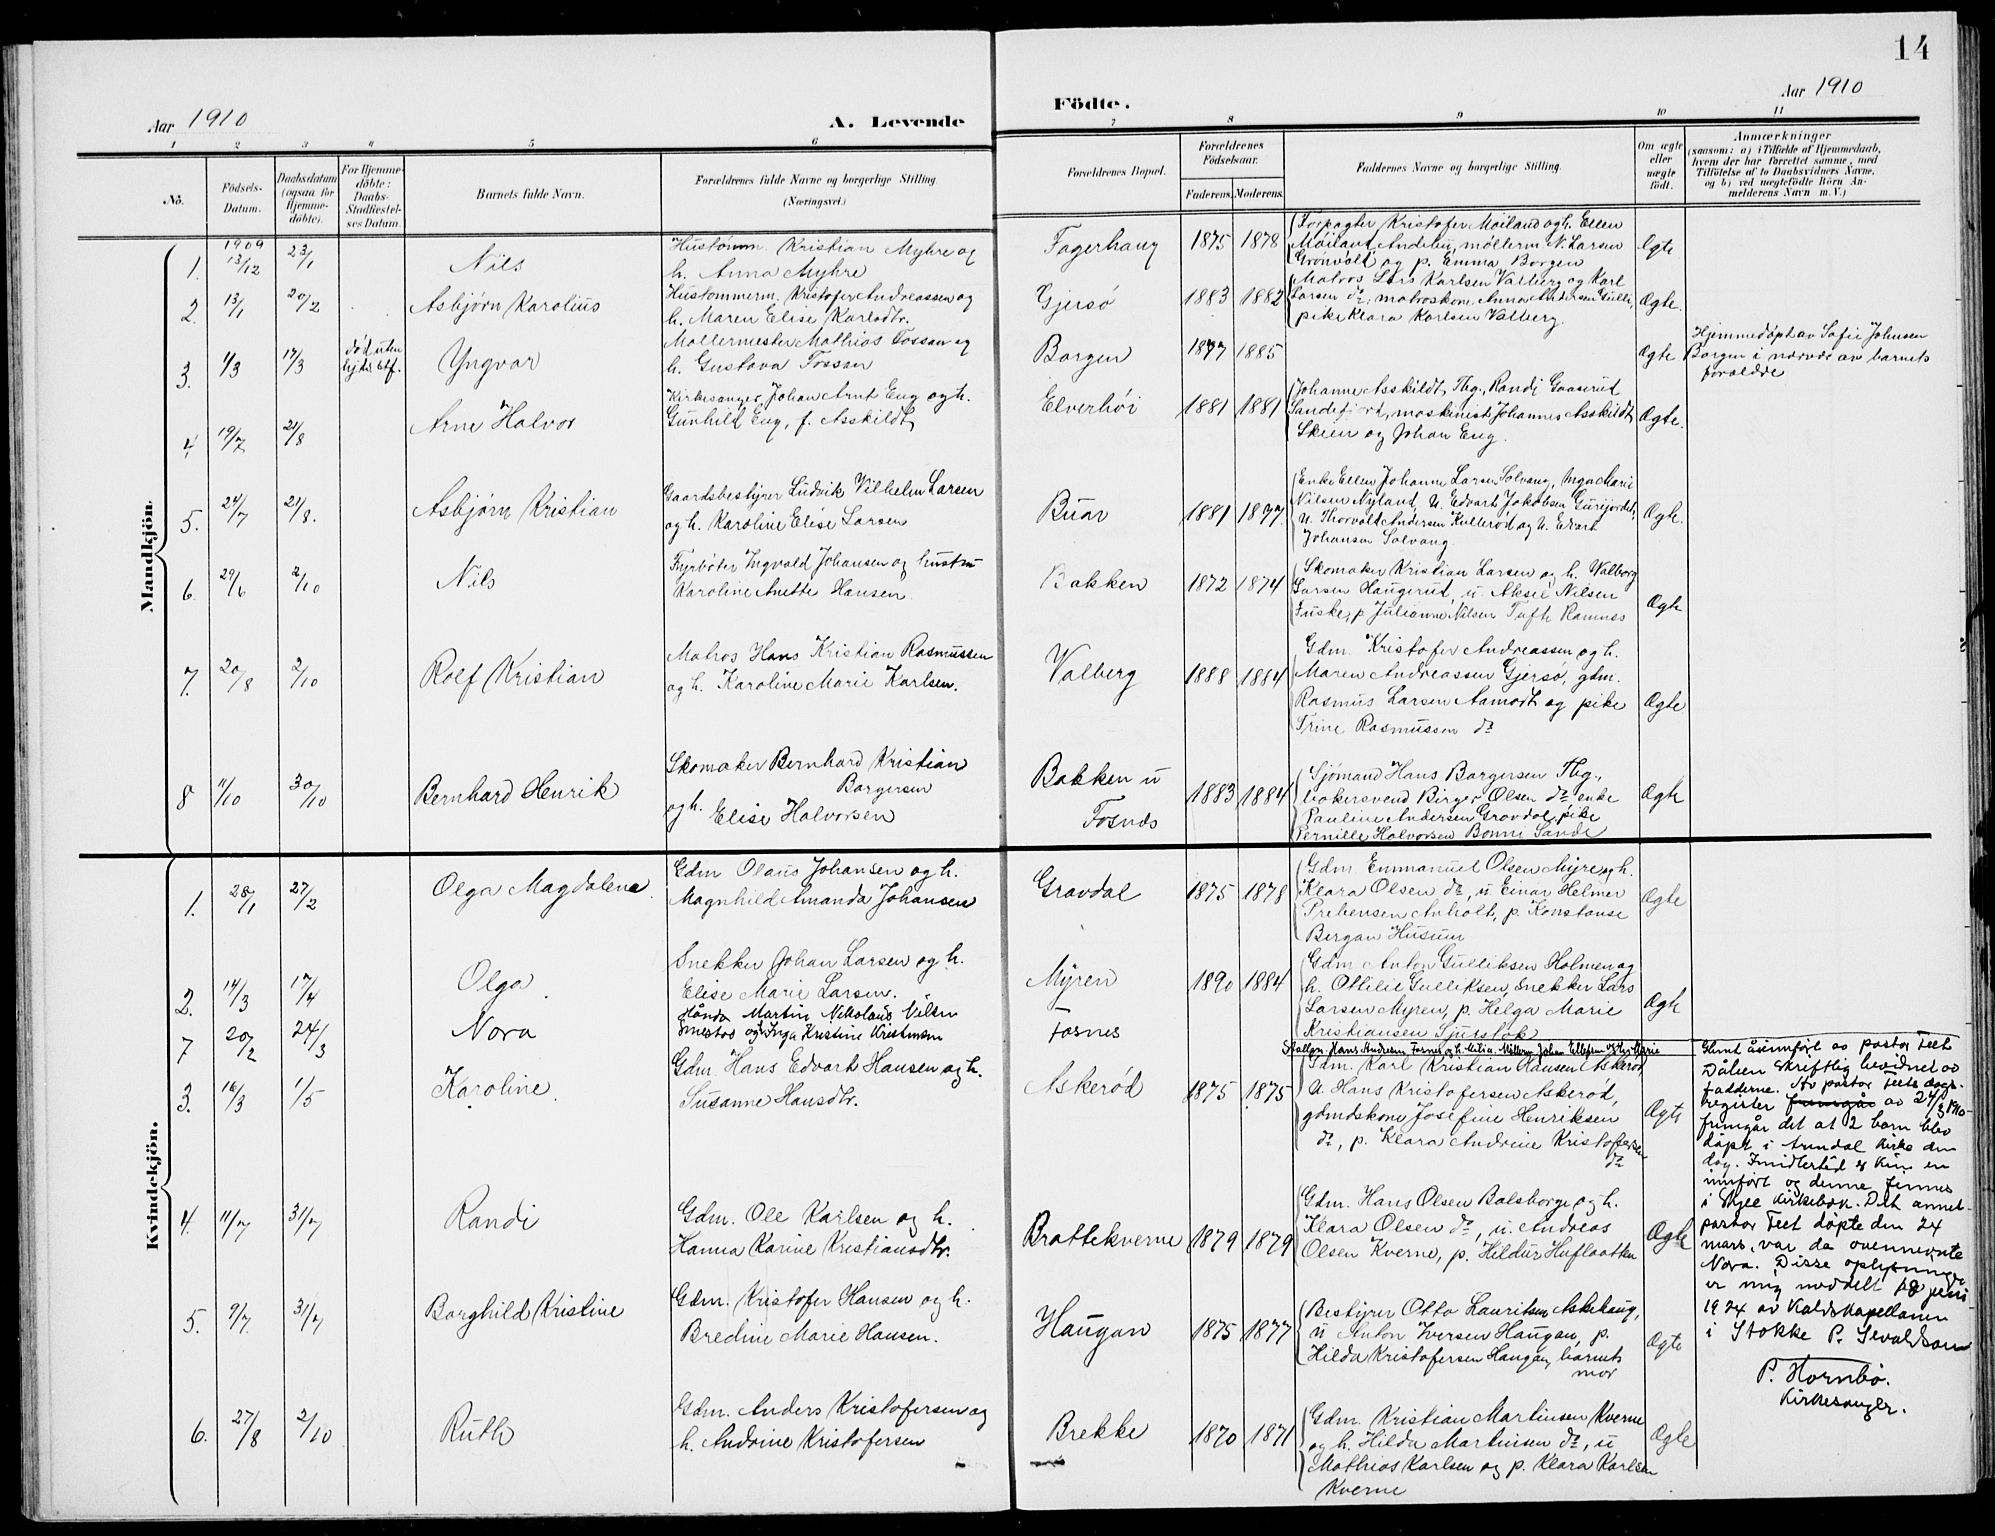 14
Aar 1910
A. Levende
Födte.
Aar 1910
1 2 3 4 5 6 7 8 9 10 11
No.
Födsels-
Datum.
Daabsdatum
(ogsaa for
Hjemme-
döbte).
For Hjemme-
döbte:
Daabs-
Stadfæstel-
ses Datum.
Barnets fulde Navn.
Forældrenes fulde Navne og borgerlige Stilling.
(Næringsvei.)
Forældrenes Bopæl.
Forældrenes
Födselsaar.
Faderens. Moderens.
Faddernes Navne og borgerlige Stilling.
Om ægte
eller
uægte
födt.
Anmærkninger
(saasom: a) i Tilfælde af Hjemmedaab,
hvem der har forrettet samme, med
Tilföielse af to Daabsvidners Navne,
og b) ved uægtefödte Börn An-
melderens Navn m. V.)
Mandkjön.
1. 1909 13/12 23/1 Nils
Hustømm. Kristian Myhre og
h. Anna Myhre
Fagerhaug 1875 1878
Forpagter Kristofer Møiland og h. Ellen
Møiland Andebu, møllerm. N. Larsen
Grönvold og p. Emma Borgen
Egte
2. 13/1 20/2 Asbjørn Karolius
Hustommerm. Kristofer Andreassen og
h. Maren Elise Karlsdtr.
Gjersø 1883 1882
Matros Lars Karlsen Valberg og Karl
Larsen do, matroskone Anna Andersen Gulli,
pike Klara Karlsen Valberg
Ægte.
3. 1/3 17/3 død uten Yngvar
Møllermester Mathias Fossan og
h. Gustava Fossan
Borgen 1877 1885
Ægte
Hjemmedøpt av Sofie Johnsen
Borgen i nærvær av barnets
foreldre
4. 19/7 21/8 Arne Halvor
Kirkesanger Johan Arnt Eng og h.
Gunhild Eng, f. Asskildt
Elverhöi 1881 1881
Johanne Asskildt, Tbg., Randi Gaaserud
Sandefjord, maskinist Johannes Asskildt
Skien og Johan Eng.
Ægte.
5. 24/7 21/8. Asbjørn Kristian
Gaardsbestyrer Ludvik Vilhelm Larsen
og h. Karoline Elise Larsen
Buar 1881 1877
Enke Ellen Johanne Larsen Solvang, Inga Marie
Nilsen Nyland, U. Edvart Jakobsen Gurijordet,
U. Thorvald Andersen Kullerød og U. Edvart
Johansen Solvang
Ægte.
6. 29/6 2/10 Nils
Fyrbøter Ingvald Johansen og hustru
Karoline Anette Hansen.
Bakken 1872 1874
Skomaker Kristian Larsen og h. Valborg
Larsen Haugerud, u. Aksel Nilsen
Fuske, p. Julianne Nilsen Tufte Ramnes
Ægte
7. 20/8 2/10 Rolf Kristian
Matros Hans Kristian Rasmussen
og h. Karoline Marie Karlsen.
Valberg 1888 1884
Gdm. Kristofer Andreassen og h.
Maren Andreassen Gjersø, gdm.
Rasmus Larsen Aamodt og pike
Trine Rasmussen do
Ægte
8 11/10 30/10 Bernhard Henrik
Skomaker Bernhard Kristian
Borgersen
og h. Elise Halvorsen
Bakken u
Fosnæs
1883 1884
Sjömand Hans Borgersen Tbg.,
bakersvend Birger Olsen do enke
Pauline Andersen Gravdal, pike
Pernille Halvorsen Bonni Sande
Ægte
Kvindekjön.
1. 28/1 27/2 Olga Magdalena.
Gdm Olaus Johansen og h.
Magnhild Amanda Johansen
Gravdal 1875 1878
Gdm. Emmanuel Olsen Myre og h.
Klara Olsen do, u. Einar Helmer
Prebensen Anholt, p. Konstanse
Bergan Husum
Ægte
2. 14/3 17/4 Olga.
Snekker Johan Larsen og h.
Elise Marie Larsen.
Myren 1890 1884
Gdm Anton Gulliksen Holmen og
h. Ottilie Gulliksen, snekker Lars
Larsen Myren, p. Helga Marie
Kristiansen Sjuestok
Ægte
7 20/2 24/3 Nora
Martin Nikolaus Nilsen
og h. Inga Kristine Kristensen
Fosnes
3. 16/3 1/5 Karoline.
Gdm. Hans Edvart Hansen og h.
Susanne Hansdtr.
Askerød 1875 1875
Gdm. Karl Kristian Hansen Askerød,
U. Hans Kristofersen Askerød,
gdmdskone Josefine Henriksen
do, p. Klara Andrine Kristofersen
do
Ægte
Glemt å innføre av pastor Teet
Dåpen skriftlig bevidnet av
fadderne. Av pastor Teets dags-
register fremgår av 24/3 1910
fremgår det at 2 barn blev
døpt i Arendal kirke den
dag. Imidlertid er kun en
innført og denne finnes
i Skjee kirkebok. Det annet
pastor Teet døpte den 24
mars, var da ovennevnte
Nora. Disse oplysninger
er mig meddelt 18 juni
1924 av Kaldskapellanen
i Stokke P. Sevaldson
P. Hornbø.
Kirkesanger.
4. 11/7 31/7 Randi
Gdm. Ole Karlsen og h.
Hanna Karine Kristiansdtr.
Brattekverne 1879 1879
Gdm. Hans Olsen Balsborge og h.
Klara Olsen do, u. Andreas
Olsen Kverne, p. Hildur Huflaatten
Ægte
5. 9/7. 31/7 Borghild Kristine
Gdm. Kristofer Hansen og h.
Bredine Marie Hansen.
Haugan 1875 1877
Bestyrer Otto Lauritsen Askehaug,
u Anton Iversen Haugan, p.
Hilda Kristofersen Haugan, barnets
mor
Ægte
6. 27/8 2/10 Ruth
Gdm. Anders Kristofersen og
h. Andrine Kristofersen
Brekke 1870 1871
Gdm. Kristian Martinsen Kverne
og h. Hilda Martinsen do, u
Mathias Karlsen og p. Klara Karlsen
Kverne
Ægte